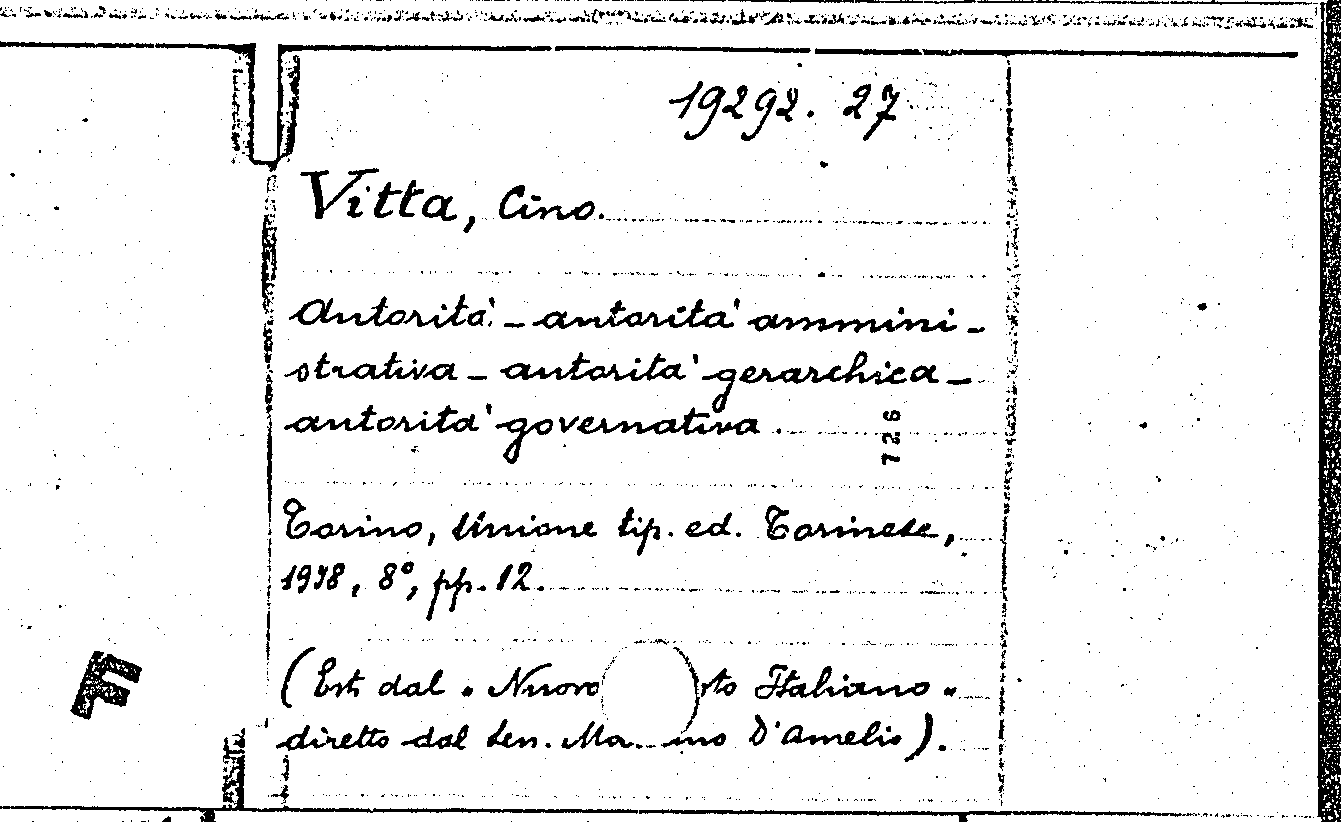 19292. 27
Vitta, Cino.
Autorità. - autorità ammini-
strativa - autorità gerarchica -
autorità governativa.
726
Torino, Unione tip. ed. Torinese,
1938, 8°, pp. 12.
(Estr dal "Nuovo Italiano"
diretto dal Sen. D'Amelio).
F